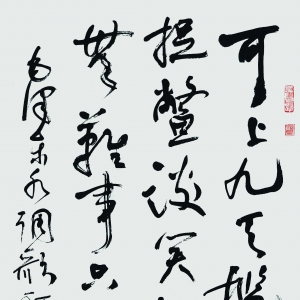 可上九天揽
捉鳖谈笑
无难事只
毛泽东水调歌